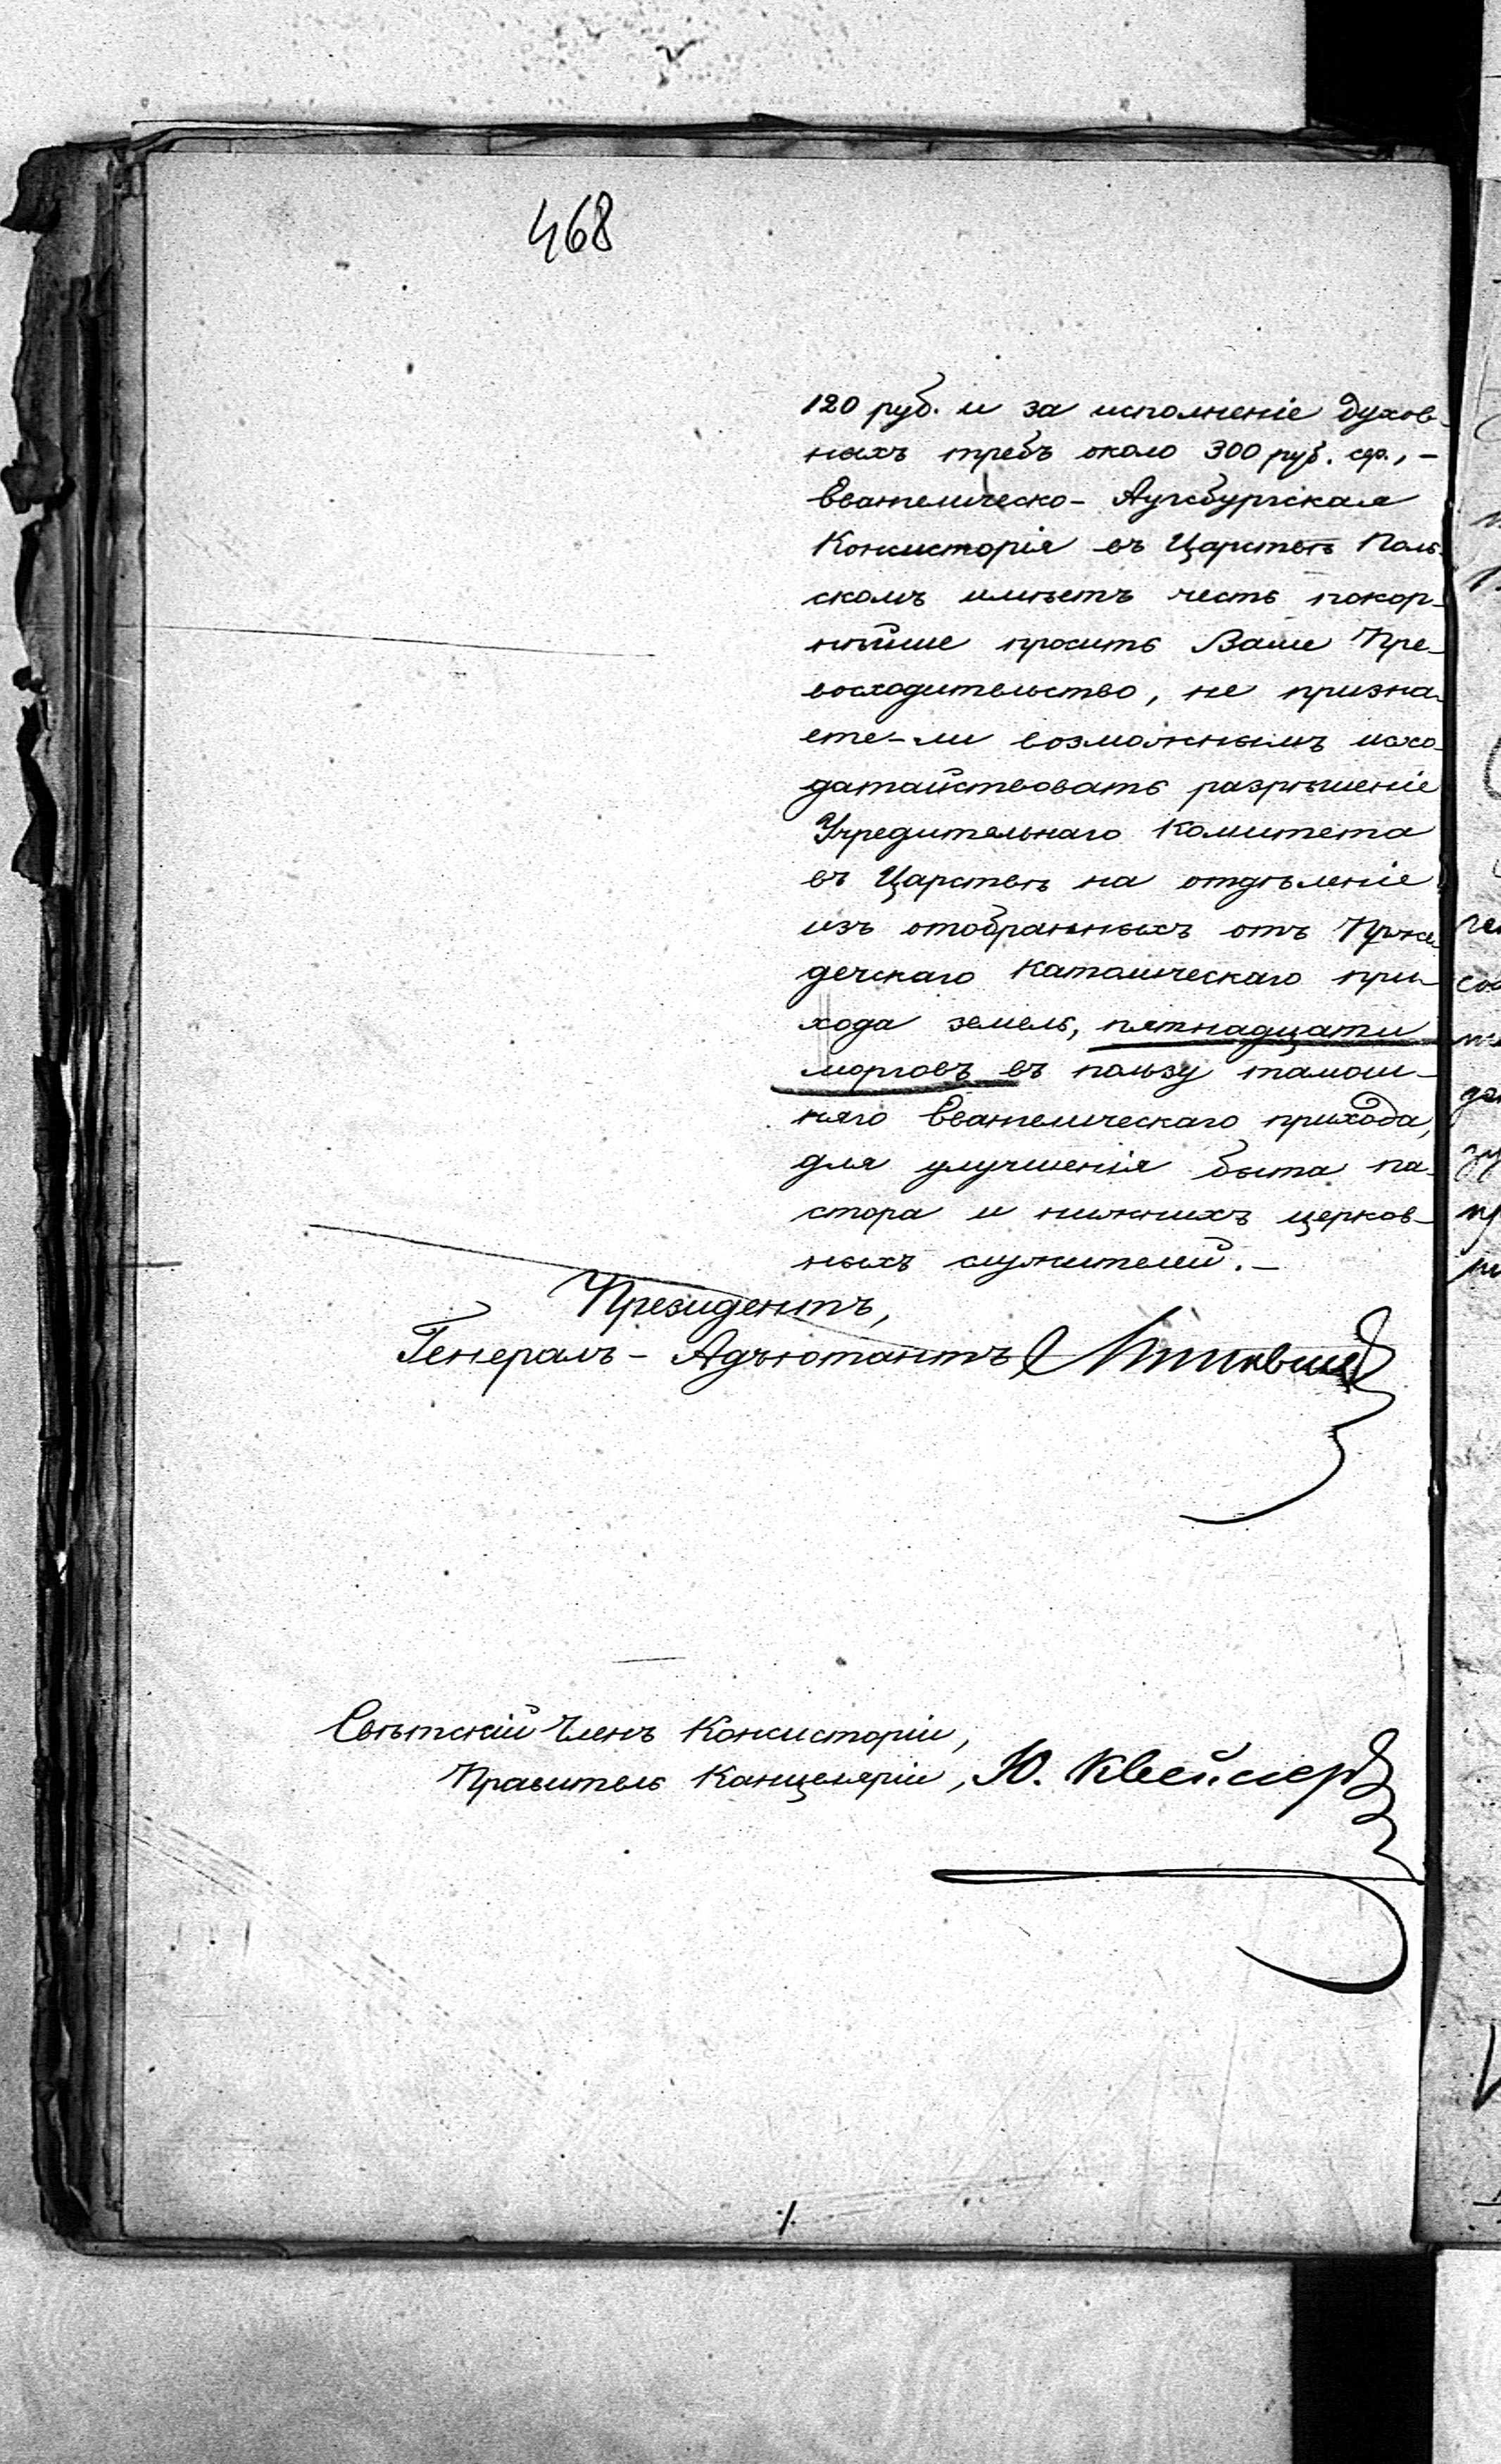 468
120 руб. и за исполненіе духов-
ныхъ требъ около 300 руб. сер., -
Евангелическо-Аугсбургская
Консисторія въ Царствѣ Поль-
скомъ имѣетъ честь покор-
нѣйше просить Ваше Пре-
восходительство, не призна-
ете-ли возможнымъ исхо-
датайствовать разрѣшеніе
Учредительнаго Комитета
въ Царствѣ на отдѣленіе
изъ отобранныхъ отъ
дечскаго Католическаго при-
хода земель, пятнадцати
морговъ въ пользу тамош-
няго Евангелическаго прихода,
для улучшенія быта па-
стора и нижнихъ церков-
ныхъ служителей. -
Президентъ,
Генералъ-Адъютантъ
Свѣтскій Членъ Консисторіи,
Правитель Канцеляріи, Ю.